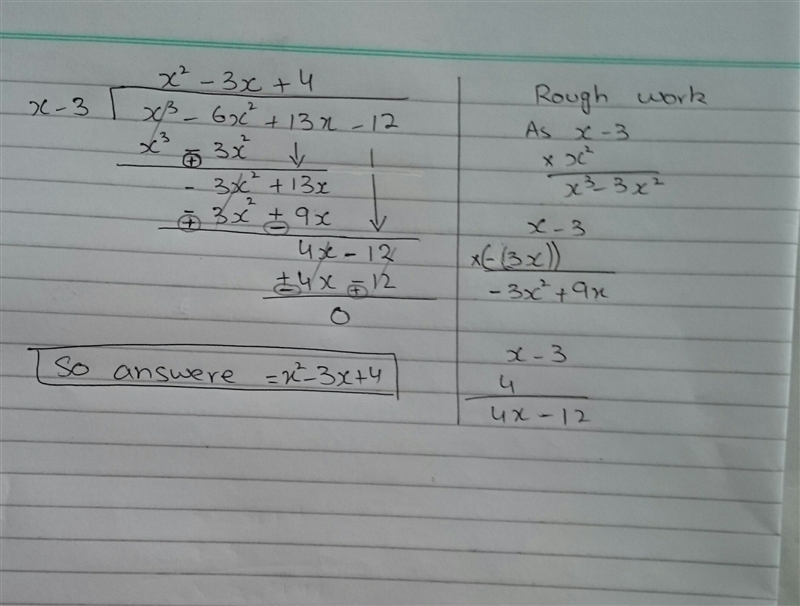 x² - 3x + 4
x - 3 | x³ - 6x² + 13x - 12
x³ - 3x²
⊕
- 3x² + 13x
- 3x² + 9x
⊕ ⊖
4x - 12
+ 4x - 12
⊖ ⊕
0
So answere = x² - 3x + 4
Rough work
As x - 3
× x²
x³ - 3x²
x - 3
×(-(3x))
- 3x² + 9x
x - 3
4
4x - 12